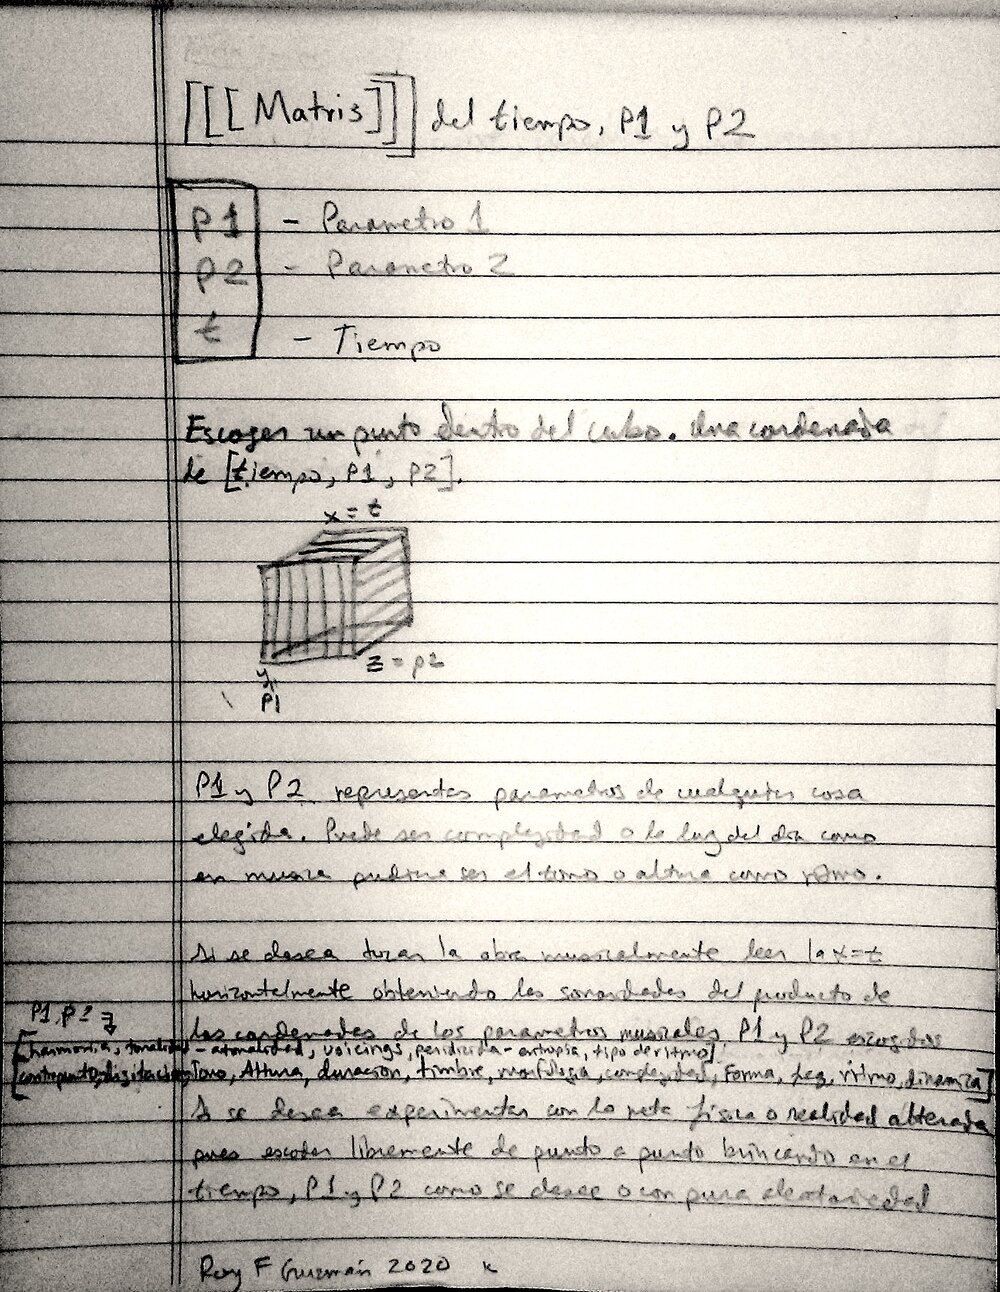 [[[Matris]]] del tiempo, P1 y P2
P1 - Parametro 1
P2 - Parametro 2
t - Tiempo
Escoger un punto dentro del cubo. Una cordenada
de [tiempo, P1, P2].
x = t
z = p2
y
P1
P1 y P2 representas parametros de cualquier cosa
elegida. Puede ser complejidad o la luz del dia como
en musica pudiera ser el tono o altura como ritmo.
Si se desea tocar la obra musicalmente leer la x=t
horizontalmente obteniendo las sonoridades del producto de
las cordenadas de los parametros musicales P1 y P2 escogidos
P1, P2 =
[harmonia, tonalidad - atonalidad, voicings, - entropia, tipo de ritmo]
contrapunto, digitacion, tono, Altura, duracion, timbre, morfologia, complejidad, Forma, ritmo, dinamica]
Si se desea experimentar con la meta fisica o realidad alterada
pues escoger libremente de punto a punto brincando en el
tiempo, P1 y P2 como se desee o con pura aleatoriedad
Roy F Guzmán 2020